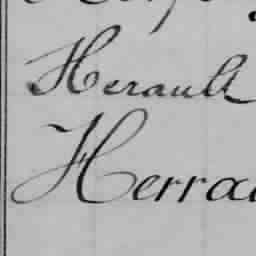 Herault
Herra